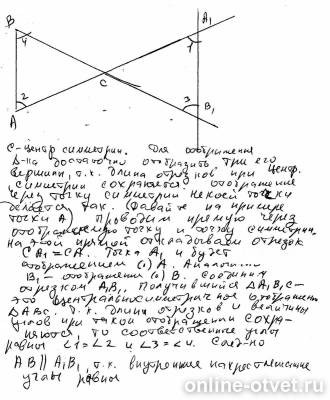 B
A₁
4
1
C
2
3
A
B₁
C - центр симметрии. Для отображения
Δ-ка достаточно отобразить три его
вершины, т.к. длина отрезков при центр.
симметрии сохраняется. Отображение
через точку симметрии некой точки
делается так. (Давайте на примере
точки A) Проводим прямую через
отображаемую точку и точку симметрии
на этой прямой откладываем отрезок
CA₁=CA. Точка A₁ и будет
отображением (·) A. Аналогич...
B₁ - отображение (·) B. Соединим
отрезком A₁B₁. Получившийся ΔA₁B₁C-
это центральносимметричное отображение
ΔABC. Т.к. длины отрезков и величины
углов при таком отображении сохра-
няются, то соответственные углы
равны ∠1=∠2 и ∠3=∠4. След-но
AB ∥ A₁B₁, т.к. внутренние накрестлежащие
углы равны
online-otvet.ru